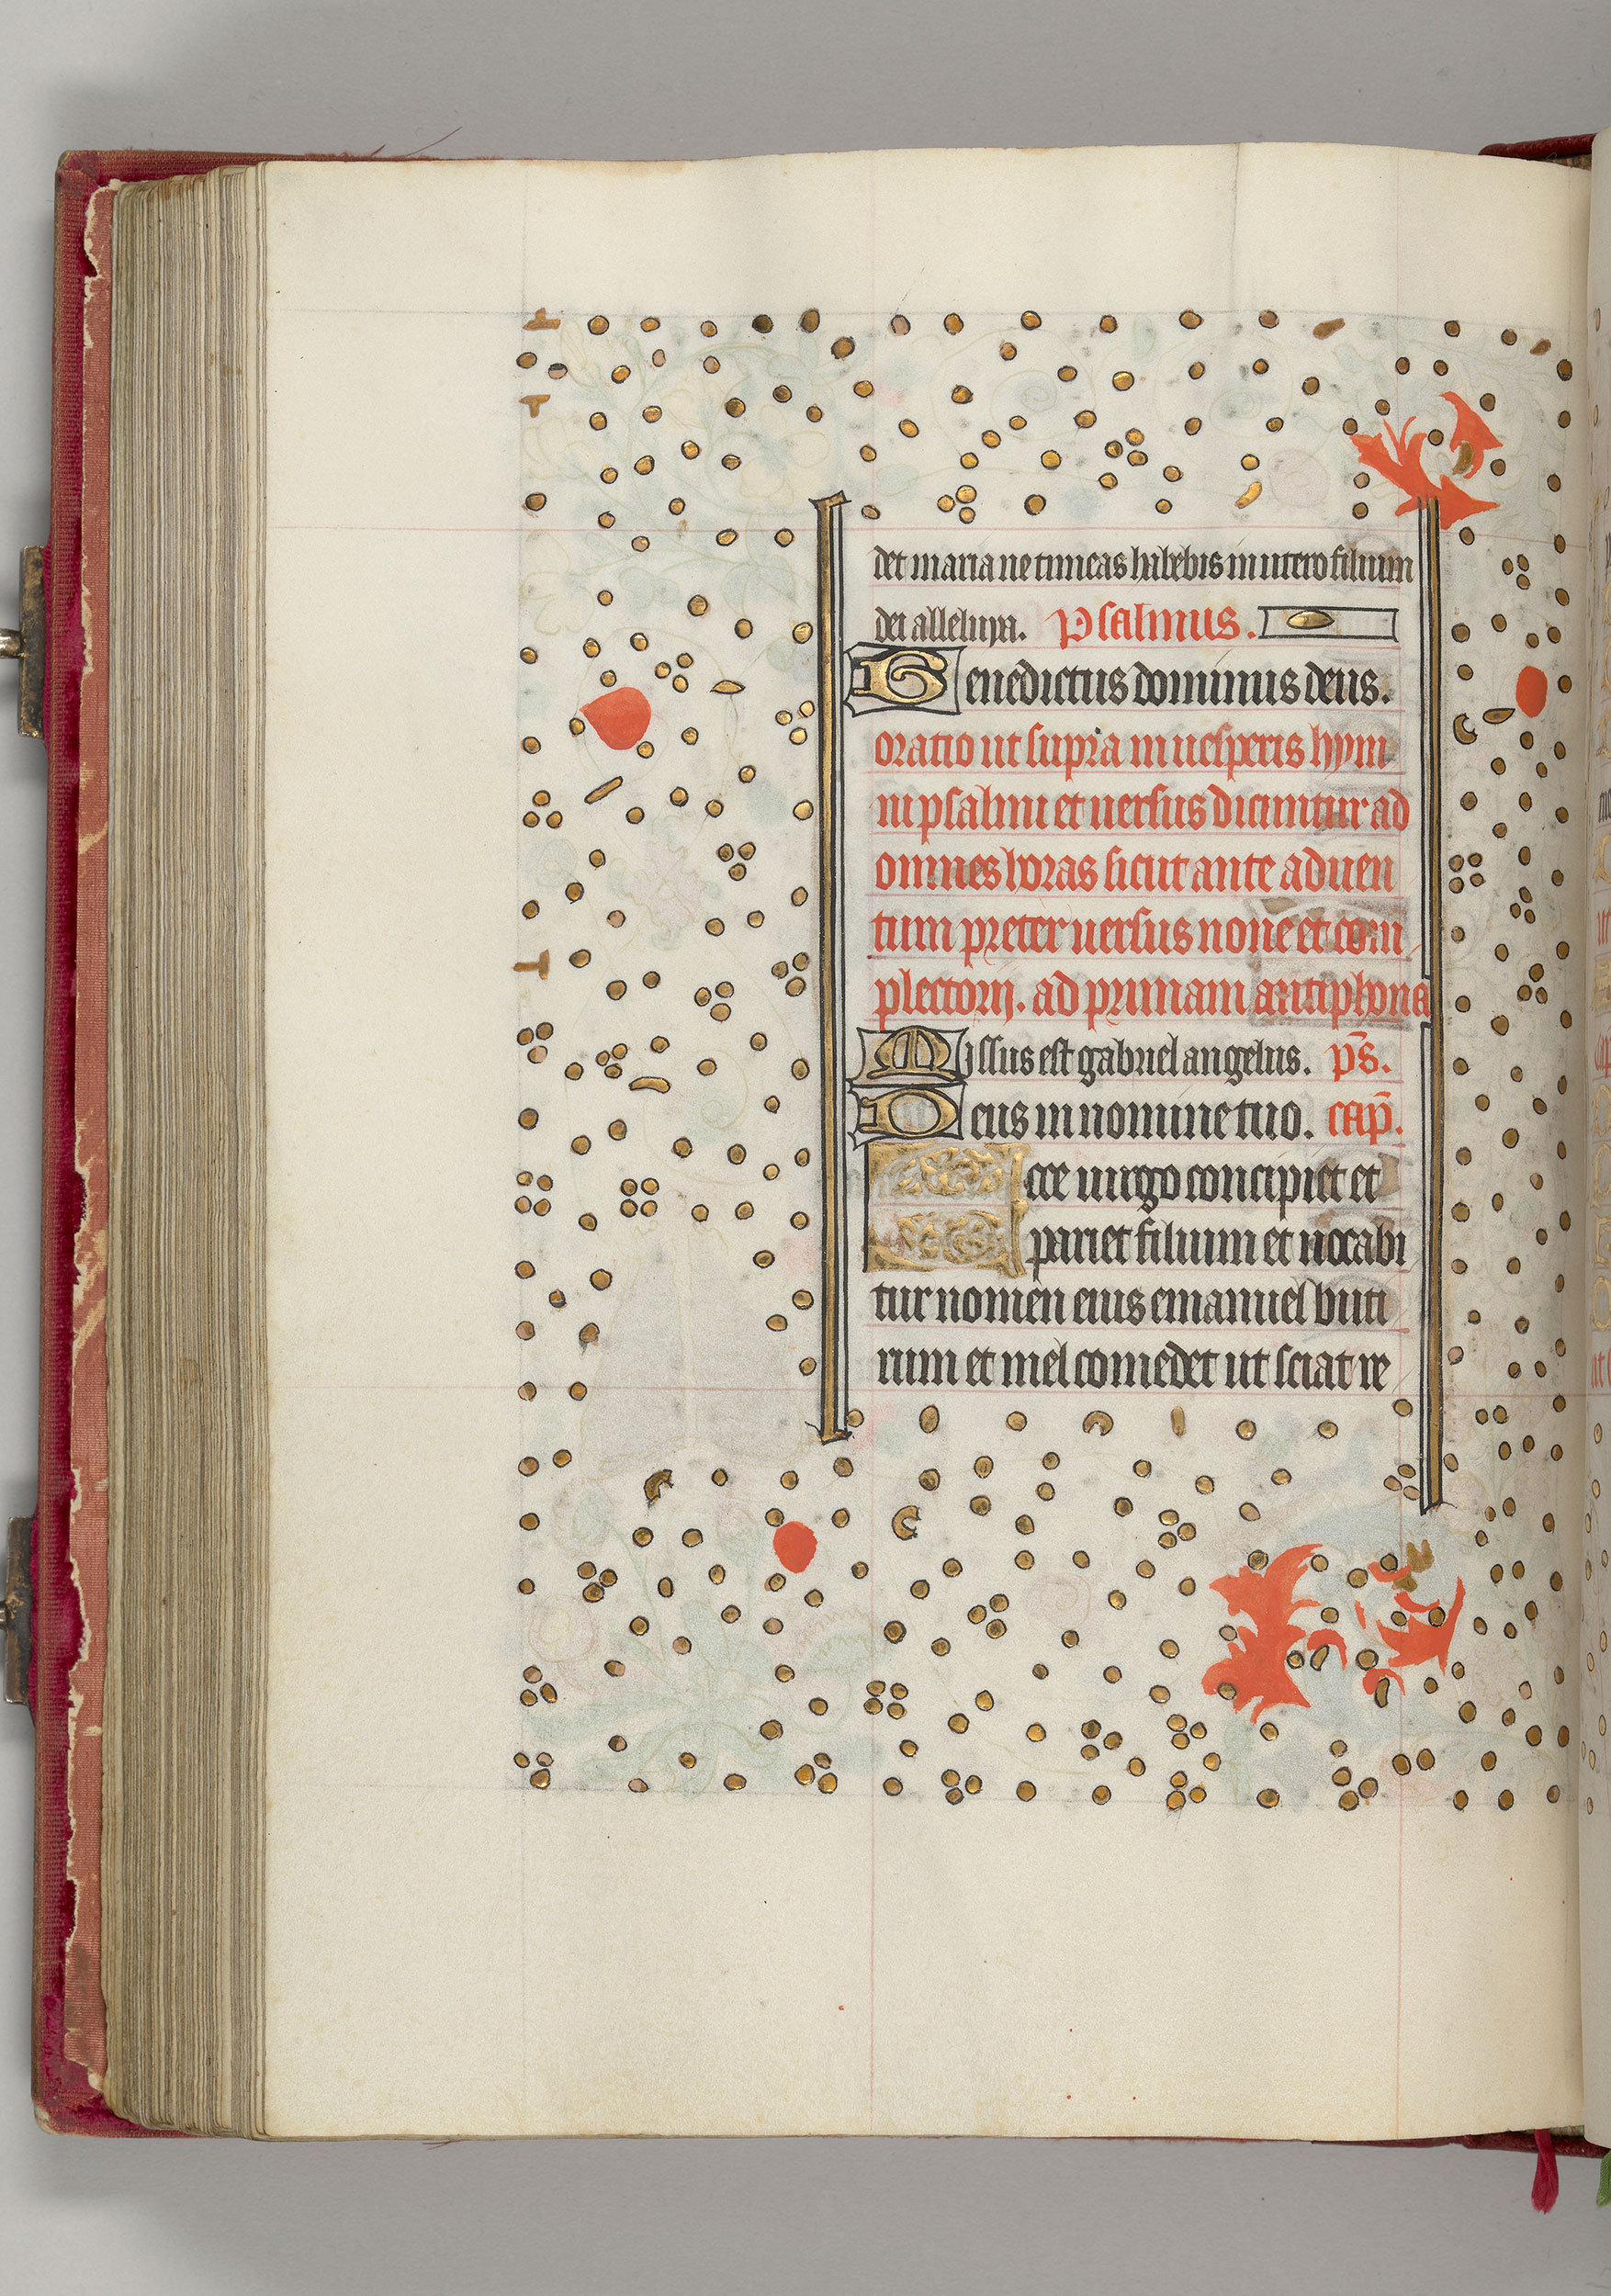 det maria ne timeas habebis in utero filium
dei alleluya. Psalmus.
Benedictus dominus deus.
oratio ut supra in uesperis hym
ni psalmi et uersus dicuntur ad
omnes horas sicut ante aduen
tum preter uersus none et com
plectorij. ad primam antiphona
Missus est gabriel angelus. p̄s.
Deus in nomine tuo. cap̄.
Ecce uirgo concipiet et
pariet filium et uocabi
tur nomen eius emanuel buti
rum et mel comedet ut sciat re